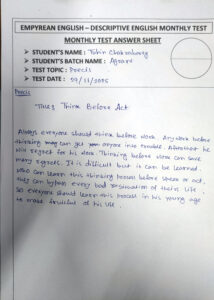 EMPYREAN ENGLISH – DESCRIPTIVE ENGLISH MONTHLY TEST
MONTHLY TEST ANSWER SHEET
➢ STUDENT'S NAME : Tuhin Chakraborty
➢ STUDENT'S BATCH NAME : Agrani
➢ TEST TOPIC : Precis
➢ TEST DATE : 09/11/2025
Precis
Think Before Act
Always everyone should think before work. Any work before
thinking may can get anyone into trouble. After that he
will regret for his work. Thinking before work can save
many regrets. It is difficult but it can be learned.
Who can learn this thinking process before speak or act,
they can bypass every bad situation of their life.
So everyone should learn this process in his young age
to make fruitful of his life.